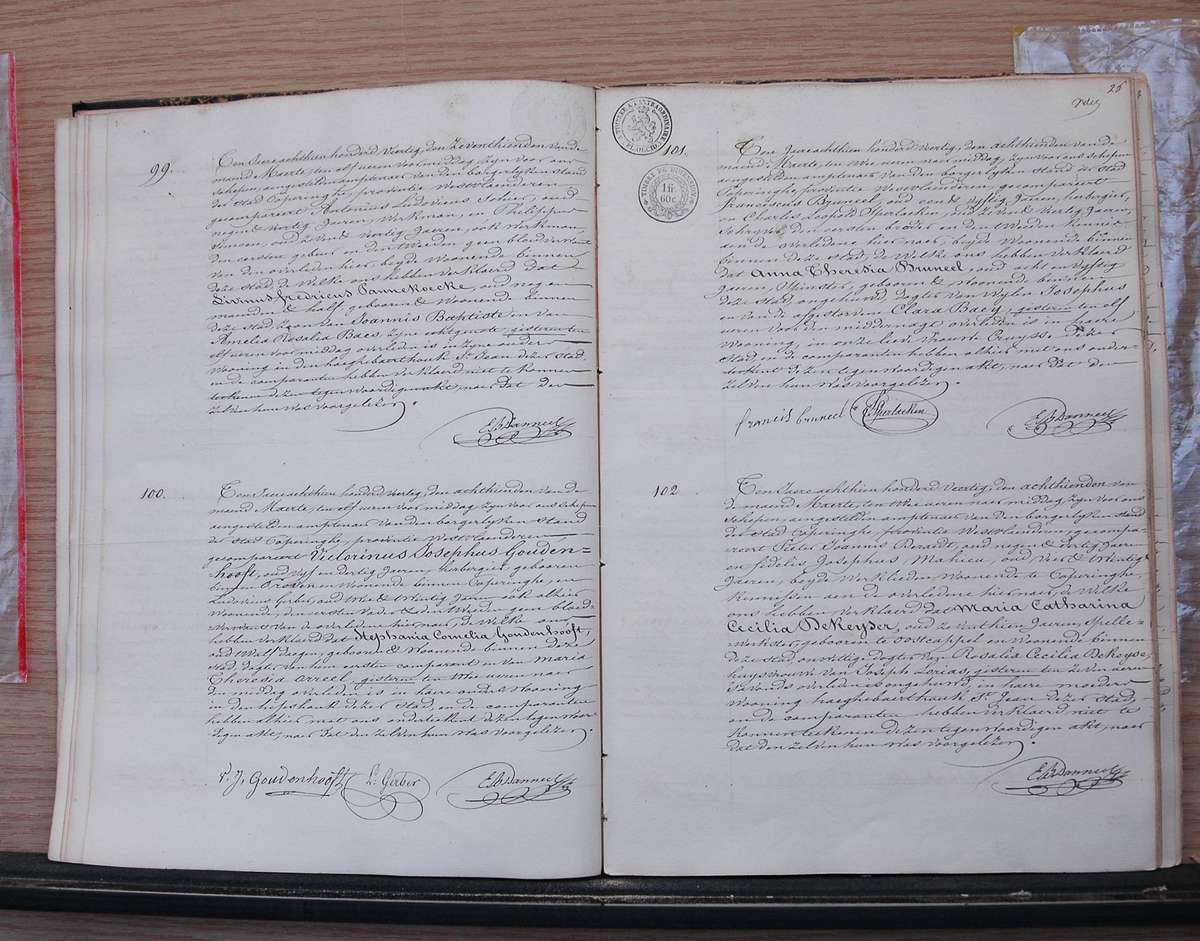 99.
Ten Jaere achthien honderd Veertig, den Zeventhienden van de
maend Maerte, ten elf uren voormiddag, zyn voor ons
schepen, aengestelden amptenaer van den borgerlyken stand
der stad Poperinghe, provintie Westvlaenderen
gecompareert Antonius Ludovicus oud
negen & veertig Jaeren, Werkman, en Philippus
oud Zeven & Veertig Jaeren, ook Werkman,
den eersten gebuer en den tweeden geen bloedverwant
van den overleden hier, beyde Woonende binnen
deze stad, de Welke ons hebben Verklaerd dat
Livinus fredricus Pannekoecke, oud negen
maenden & half, geboren & Woonende binnen
deze stad, zoon van Joannis Baptiste en van
Amelia Rosalia Baes zyne echtgenote, gisteren ten
elf uren voor middag overleden is in zyne ouders
Wooning in den haeghebaerthouk St Jean dezer stad,
en de comparanten hebben Verklaerd niet te konnen
teekenen dezen tegenwoordigen akt, naer dat den
zelven hun Was voorgelezen.
100.
Ten Jaere achthien honderd Veertig, den achthienden van de
maend Maerte, ten elf uren voor middag zyn voor ons Schepen
aengestelden amptenaer van den borgerlyken stand
der stad Poperinghe, provintie Westvlaenderen
gecompareert Victorinus Josephus Gouden=
hooft, oud Vyf en dertig Jaeren, herbergier, geboren
binnen Proven & Woonende binnen Poperinghe, en
Ludovicus Gerber, oud drie & Twintig Jaren ook alhier
Woonende, den eersten Vader & den tweeden geen bloed-
verwant van de overledene hier naer, de Welke ons
hebben Verklaerd dat Stephania Cornelia Goudenhooft,
oud Twalf dagen, geboren & Woonende binnen deze
stad, dogter van hun eersten comparant en van Maria
Theresia Arreel, gisteren ten drie uren naer
den middag overleden is in haere ouders Wooning
in den hipshouk dezer Stad, en de comparanten
hebben alhier met ons onderteekent dezen tegenwoor-
digen akt, naer dat den zelven hun Was voorgelezen.
V. J. Goudenhooft, L. Gerber
26
101.
1 fr
60 c.
Ten Jaere achthien honderd Veertig, den achthienden van de
maend Maerte, ten drie uren naer middag, zyn voor ons schepen
aengestelden amptenaer van den borgerlyken stand der stad
Poperinghe, provintie Westvlaenderen, gecompareert
franciscus Bruneel, oud een & Vyftig Jaeren, herbergier,
en Charles Leopold Sperlaeken, oud zeven & Veertig Jaeren,
Schryver, den eersten broeder en den tweeden kennis
aen de overledene hier naer, beyde Woonende binnen
deze stad, de Welke ons hebben Verklaerd
dat Anna Theresia Bruneel, oud acht en Vyftig
Jaeren, Spinster, geboren & Woonende binnen
deze stad, ongehuwd, dogter van Wylen Josephus
en van de afgestorven Clara Baey, gisteren ten elf
uren voor den middernagt overleden is in haere
Wooning, in onze lieve Vrouwe Cruysse, dezer
stad en de comparanten hebben alhier met ons onder-
teekent dezen tegenwoordigen akt, naer dat den
zelven hun Was voorgelezen.
francis bruneel Sperlaeken
102
Ten Jaere achthien honderd Veertig, den achthienden van
de maend Maerte, ten drie uren naer middag zyn voor ons
Schepen, aengestelden amptenaer van den borgerlyken stand
der Stad Poperinghe, provintie Westvlaenderen, gecompa-
reert Pieter Joannis Beraidt, oud negen & dertig Jaeren
en fidelis Josephus Mahieu, oud Vier & Twintig
Jaeren, beyde Werklieden Woonende te Poperinghe,
kennissen aen de overledene hier naer, de Welke
ons hebben Verklaerd dat Maria Catharina
Cecilia DeKeyser, oud zeventhien Jaeren, Spelle-
Werkster, geboren te oostcappel & Woonende binnen
deze stad, onwettige dogter van Rosalia Cecilia DeKeyser,
huysvrouwe van Joseph Lorias, gisteren ten zeven uren
s'avonds overleden is ongehuwd, in haere moeder
Wooning haeghebaerthouk St Jan dezer stad
en de comparanten hebben Verklaerd niet te
konnen teekenen dezen tegenwoordigen akt, naer
dat den zelven hun Was voorgelezen.